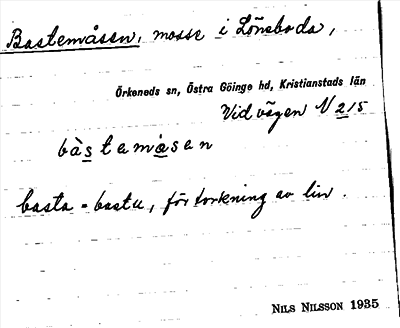 Bastemåsen, mosse i Lönsboda,
Örkeneds sn, Östra Göinge hd, Kristianstads län
Vid vägen N 215
bàstemåsen
basta = bastu, för torkning av lin.
NILS NILSSON 1935